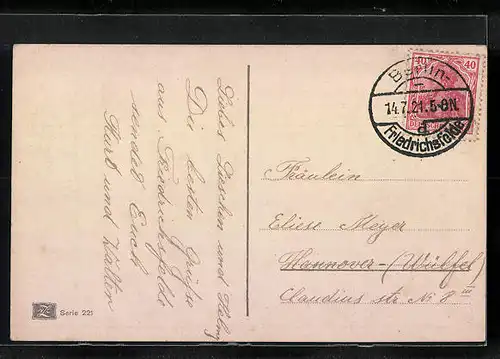 Liebes Lieschen und Helmy
Die besten Grüße
aus Friedrichsfelde
sendet Euch
Kurt und Walter
40 40
Berlin-
14.7.21.5-6N.
d
Friedrichsfelde
Fräulein
Eliese Meyer
Hannover-(Wülfel)
Claudius str No 8 III
Serie 221